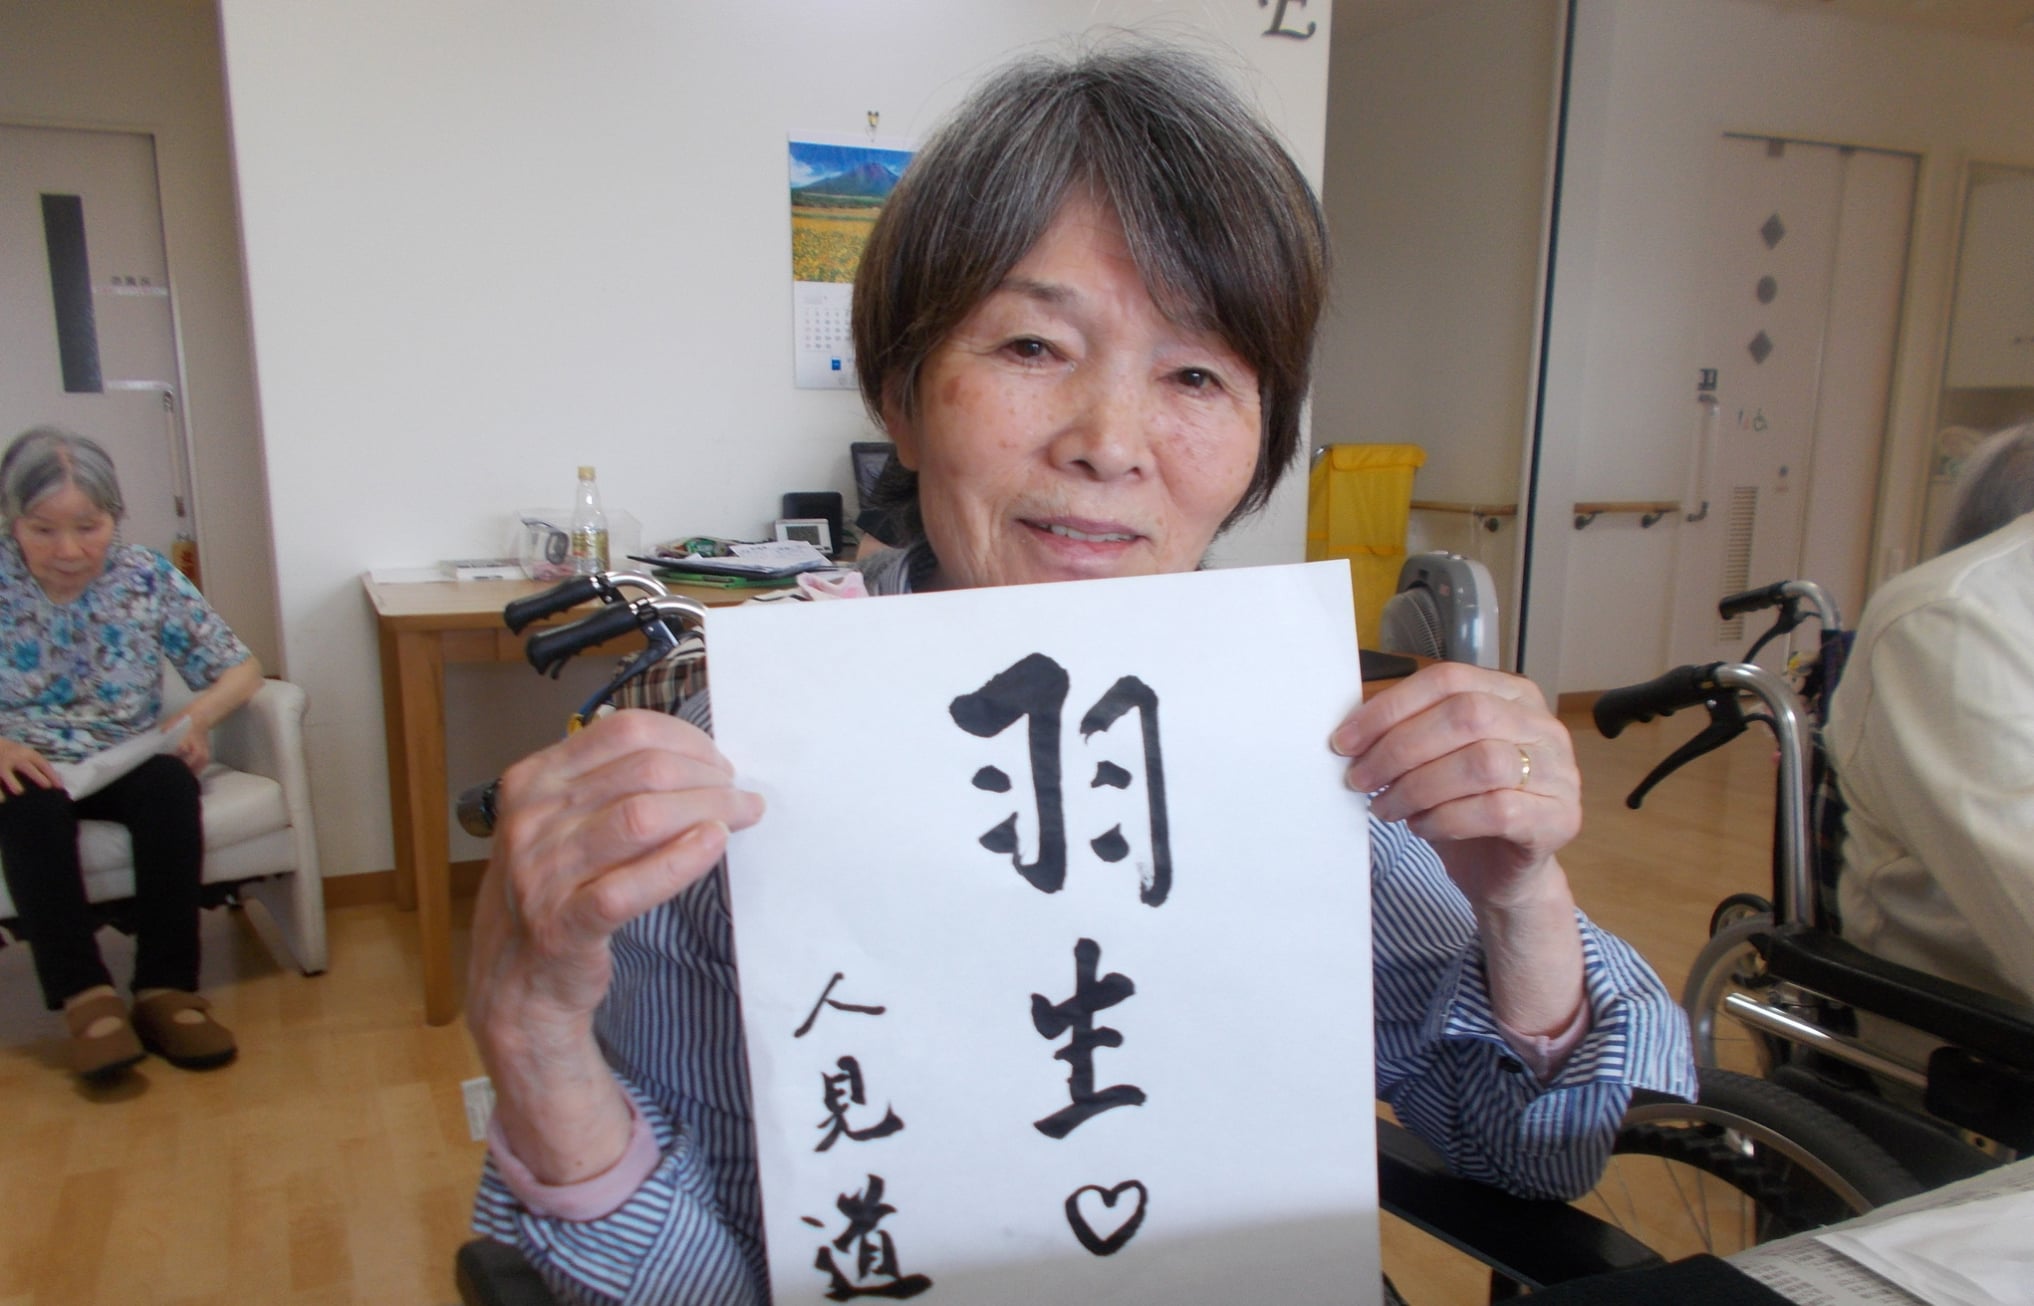 羽生♡
人見道
E